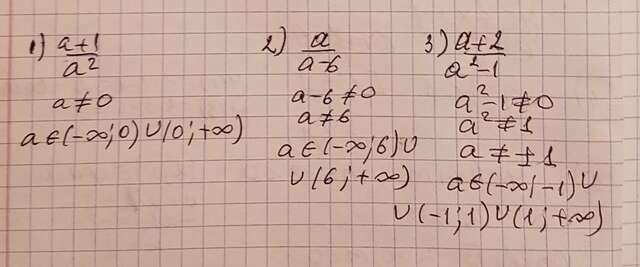 1) a+1/a²
a≠0
a∈(-∞;0)∪(0;+∞)
2) a/a-6
a-6≠0
a≠6
a∈(-∞;6)∪
∪(6;+∞)
3) a+2/a²-1
a²-1≠0
a²≠1
a≠±1
a∈(-∞;-1)∪
∪(-1;1)∪(1;+∞)